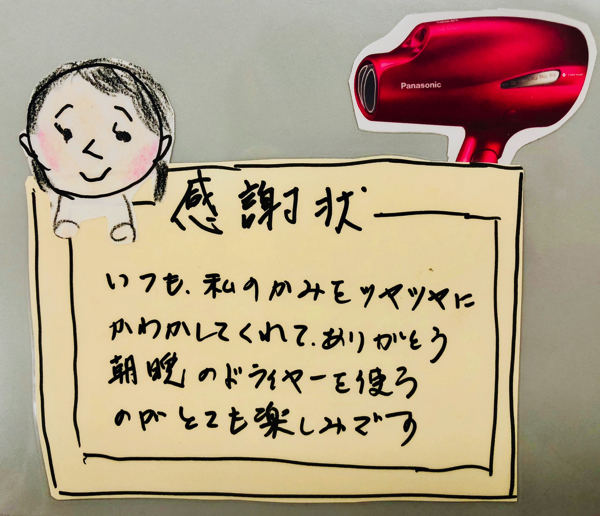 Panasonic
感謝状
いつも、私のかみをツヤツヤに
かわかしてくれて、ありがとう
朝晩のドライヤーを使う
のがとても楽しみです